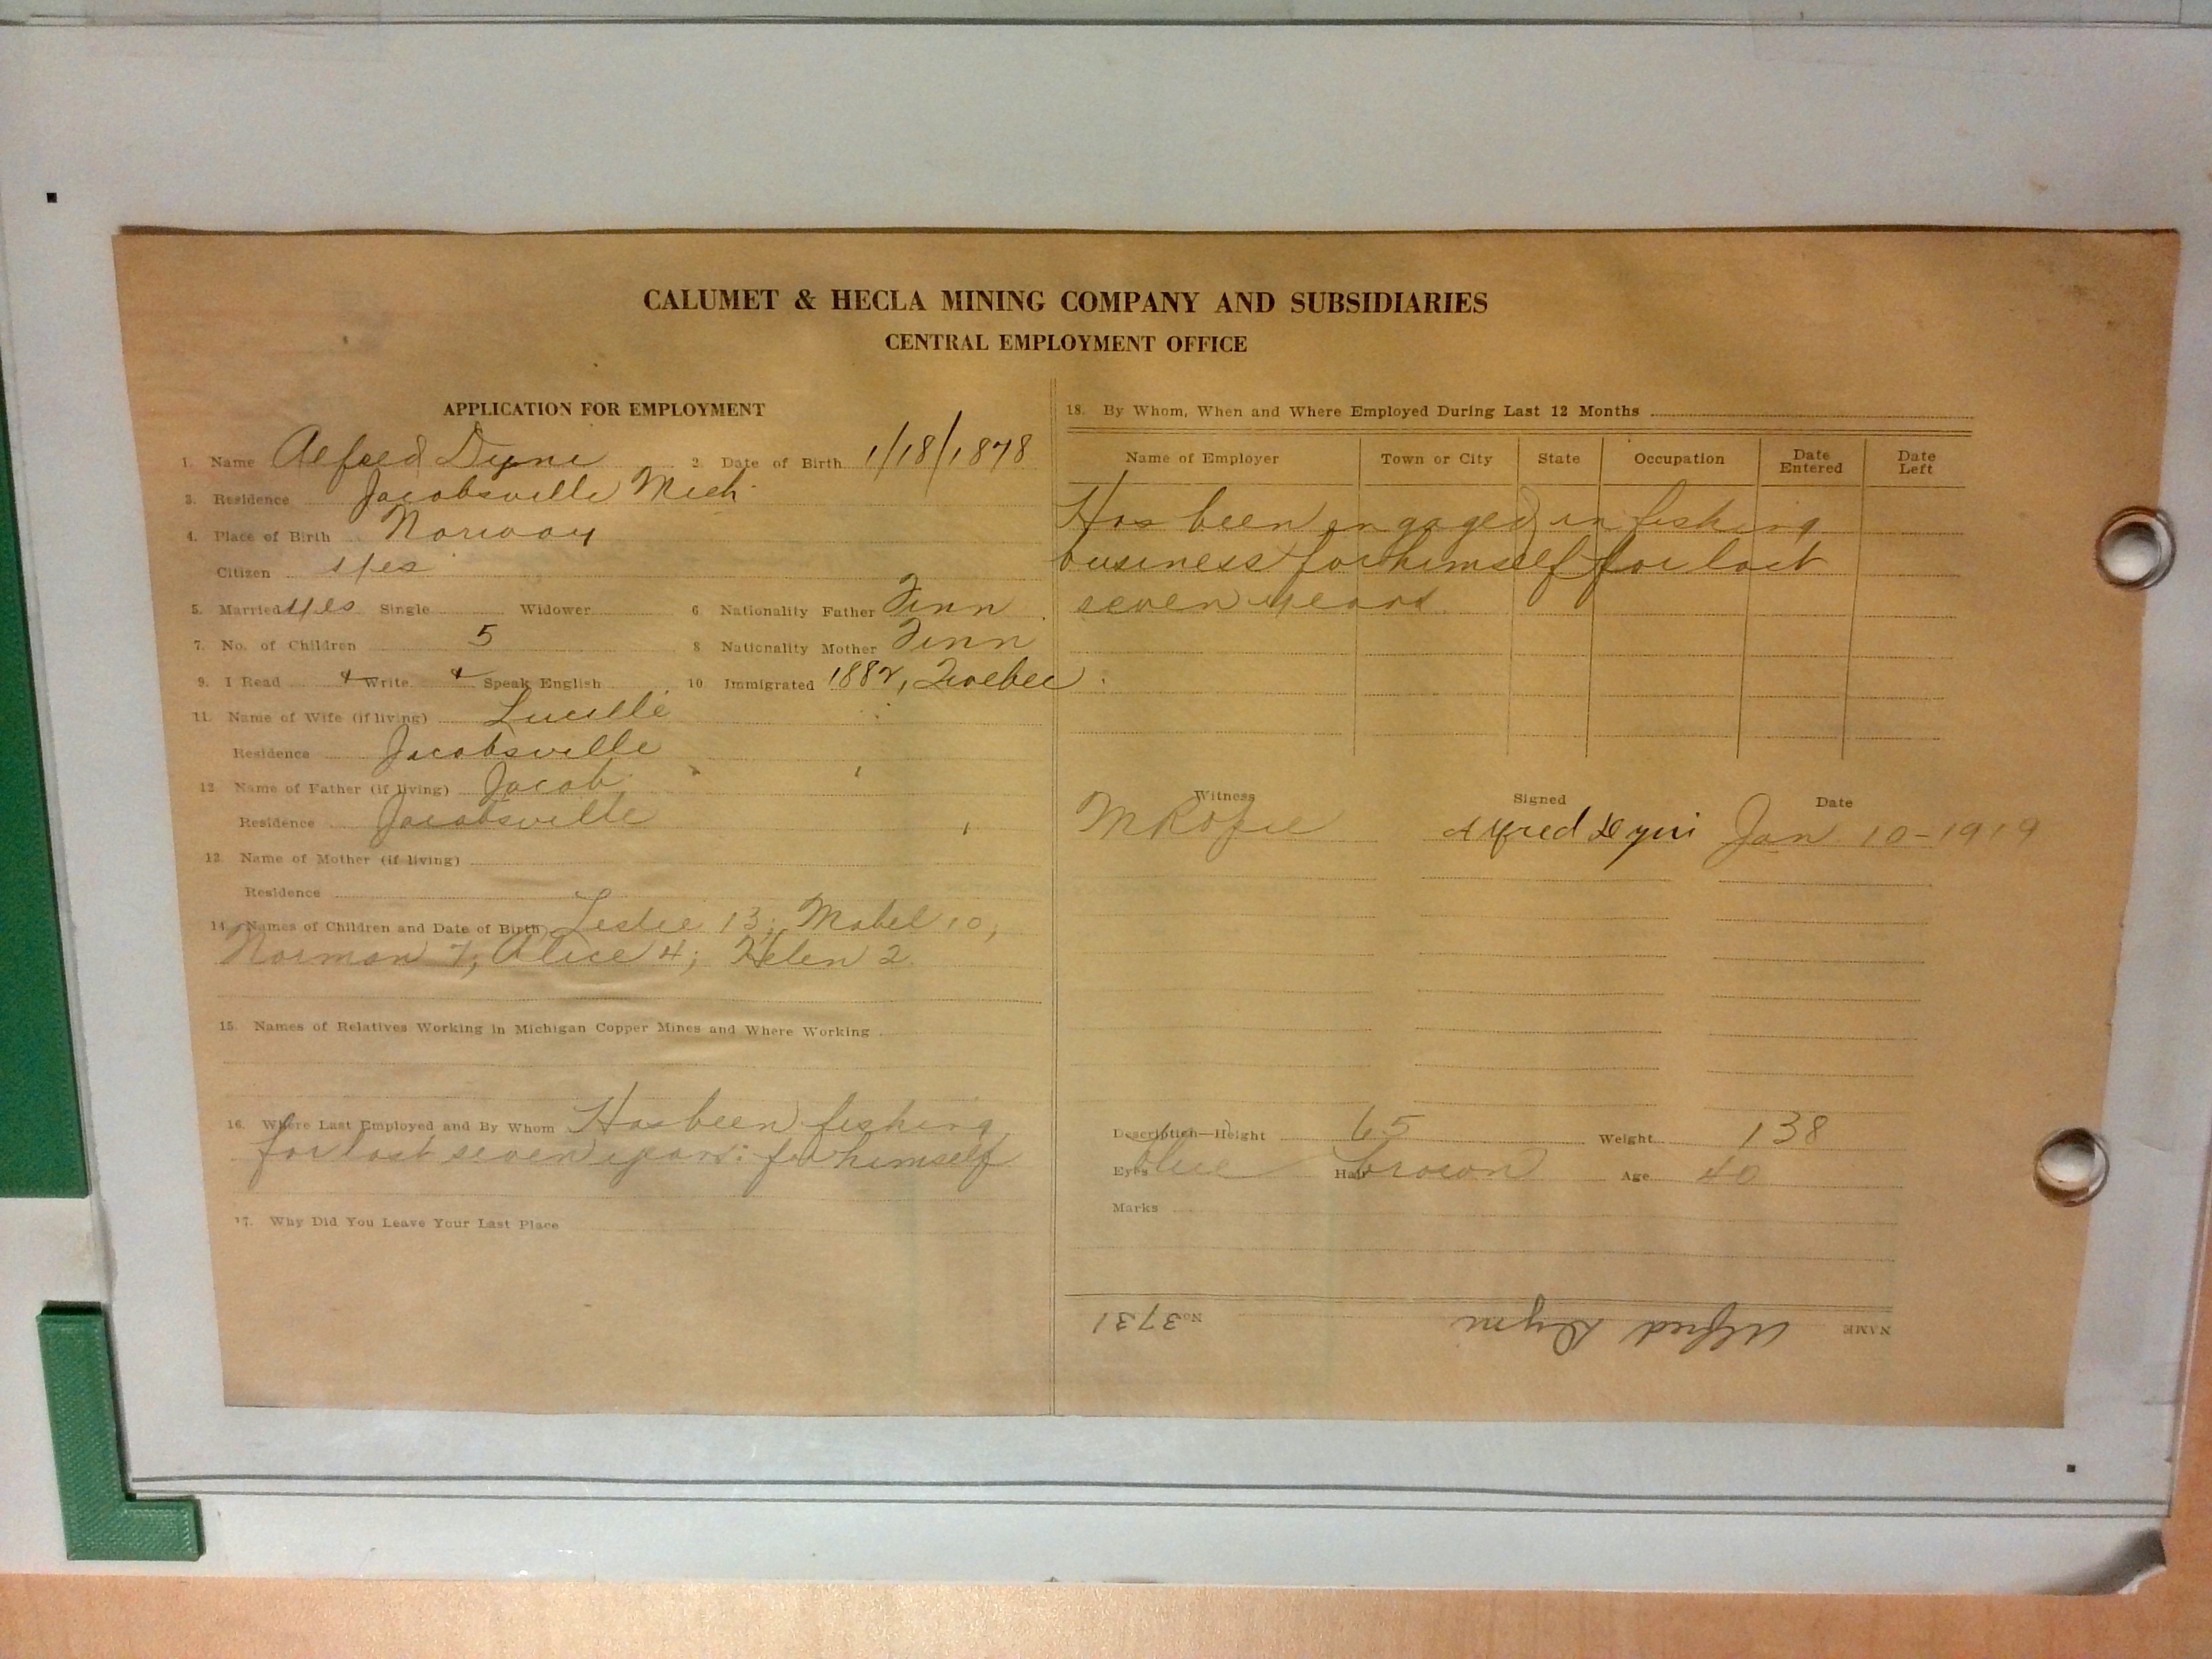 CALUMET & HECLA MINING COMPANY AND SUBSIDIARIES
CENTRAL EMPLOYMENT OFFICE
APPLICATION FOR EMPLOYMENT
1. Name Alfred Dyni 2. Date of Birth 1/18/1878
3. Residence Jacobsville Mich.
4. Place of Birth Norway
Citizen yes
5. Married yes Single Widower 6. Nationality Father Finn
7. No. of Children 5 8 Nationality Mother Finn
9. I Read Write Speak English 10. Immigrated 1882, Quebec
11. Name of Wife (if living) Lucille
Residence Jacobsville
12 Name of Father (if living) Jacob
Residence Jacobsville
13. Name of Mother (if living)
Residence
14. Names of Children and Date of Birth Leslie 13; Mabel 10;
Norman 7; Alice 4; Helen 2.
15. Names of Relatives Working in Michigan Copper Mines and Where Working
16. Where Last Employed and By Whom Has been fishing
for last seven years: for himself
17. Why Did You Leave Your Last Place
18. By Whom, When and Where Employed During Last 12 Months
Name of Employer Town or City State Occupation Date Entered Date Left
Has been engaged in fishing
business for himself for last
seven years.
Witness Signed Date
Alfred Dyni Jan. 10-1919
Description—Height 6.5 Weight 138
Eyes blue Hair brown Age 40
Marks
NAME Alfred Dyni No. 3731